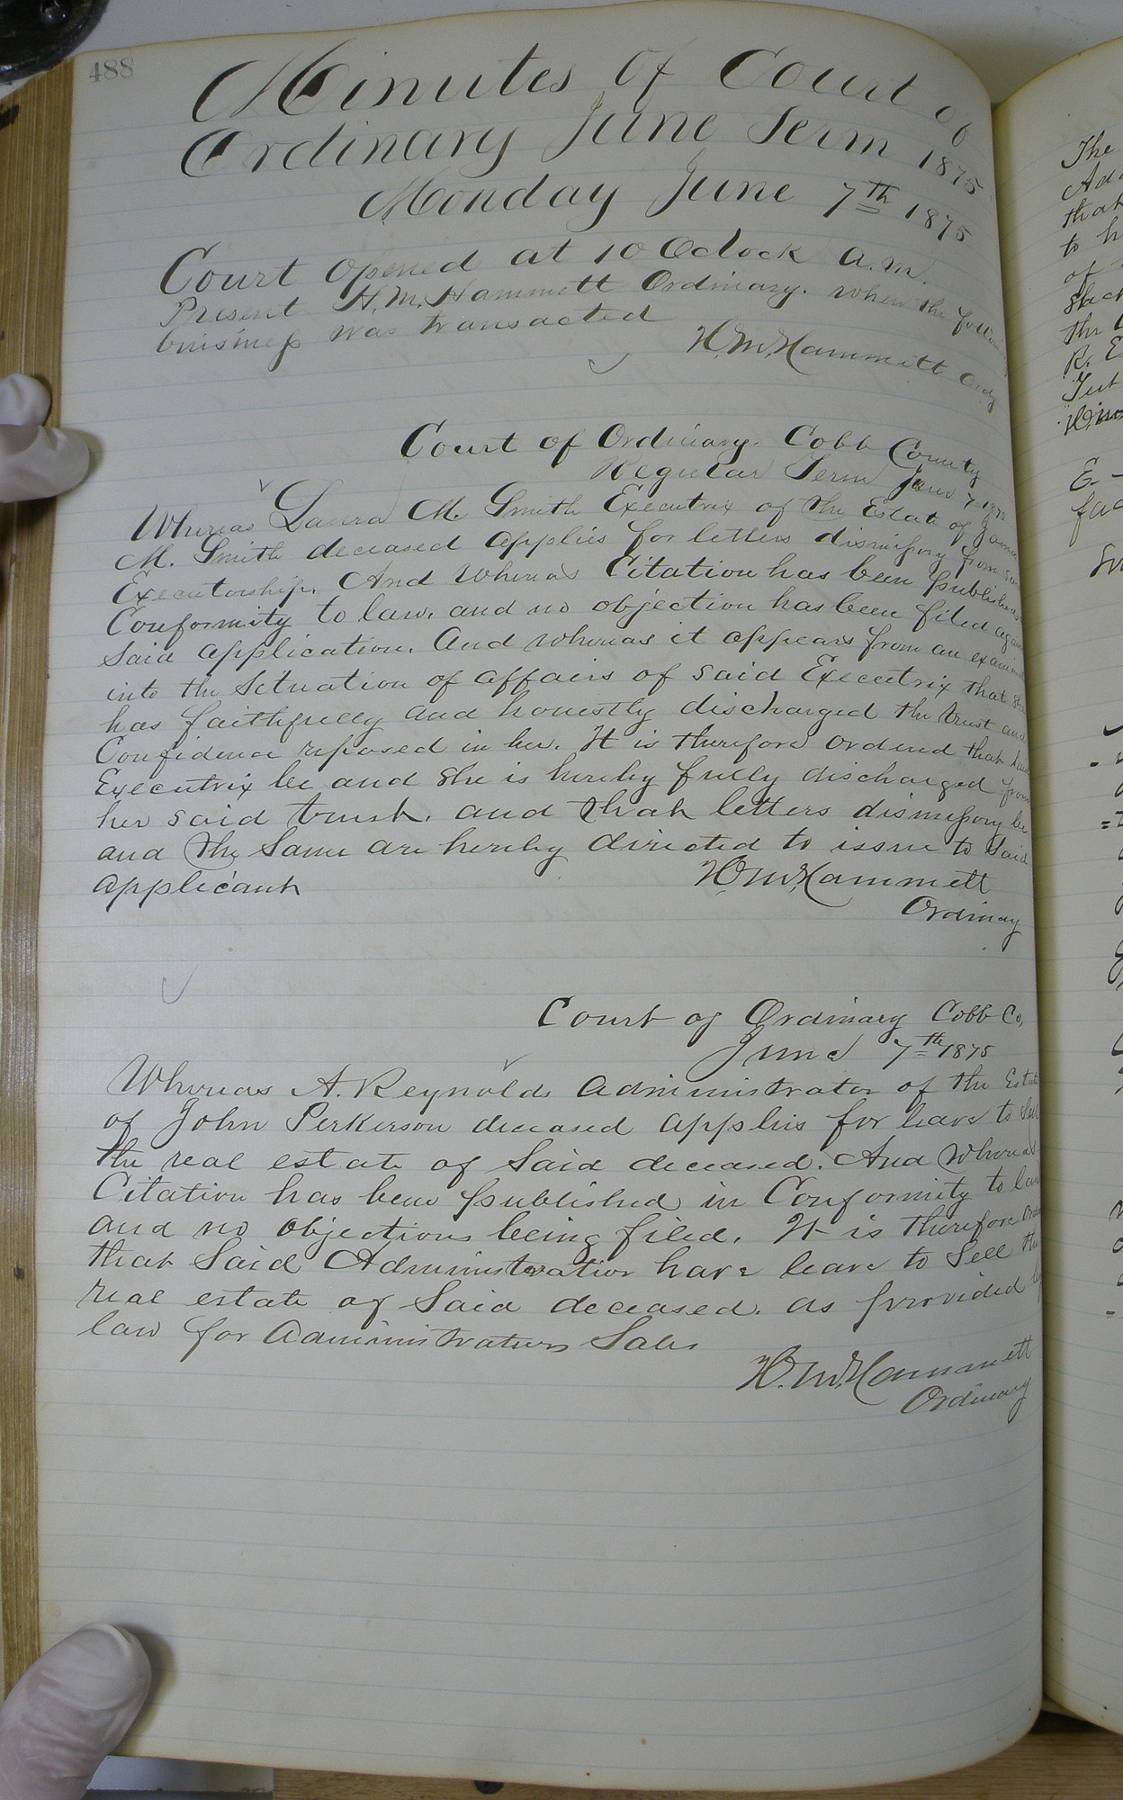 488
Minutes of Court of
Ordinary June Term 1875
Monday June 7th 1875
Court opened at 10 Oclock A.M.
Present H.M. Hammett Ordinary. when the follow
business was transacted
H.M. Hammett Ordy
Court of Ordinary Cobb County
Regular Term June 7 1875
Whereas Laura M. Smith Executrix of the Estate of James
M. Smith deceased applies for letters dismissory from
Executorship. And Whereas Citation has been published
Conformity to law, and no objection has been filed
Said application. And whereas it appears from an
into the Situation of affairs of said Executrix that she
has faithfully and honestly discharged the trust and
Confidence reposed in her. It is therefore ordered that
Executrix be and she is hereby fully discharged from
her said trust. and that letters dismissory be
and the Same are hereby directed to issue to Said
applicant
H.M. Hammett
Ordinary
Court of Ordinary Cobb Co,
June 7th 1875
Whereas A. Reynolds administrator of the Estate
of John Perkerson deceased applies for leave to Sell
the real estate of Said deceased. And Whereas
Citation has been published in Conformity to law
and no objections being filed. It is therefore
that Said Administration have leave to Sell the
real estate of Said deceased. as provided by
law for Administrators Sales
H.M. Hammett
Ordinary
The
that
to h
of
the
R. E
E.